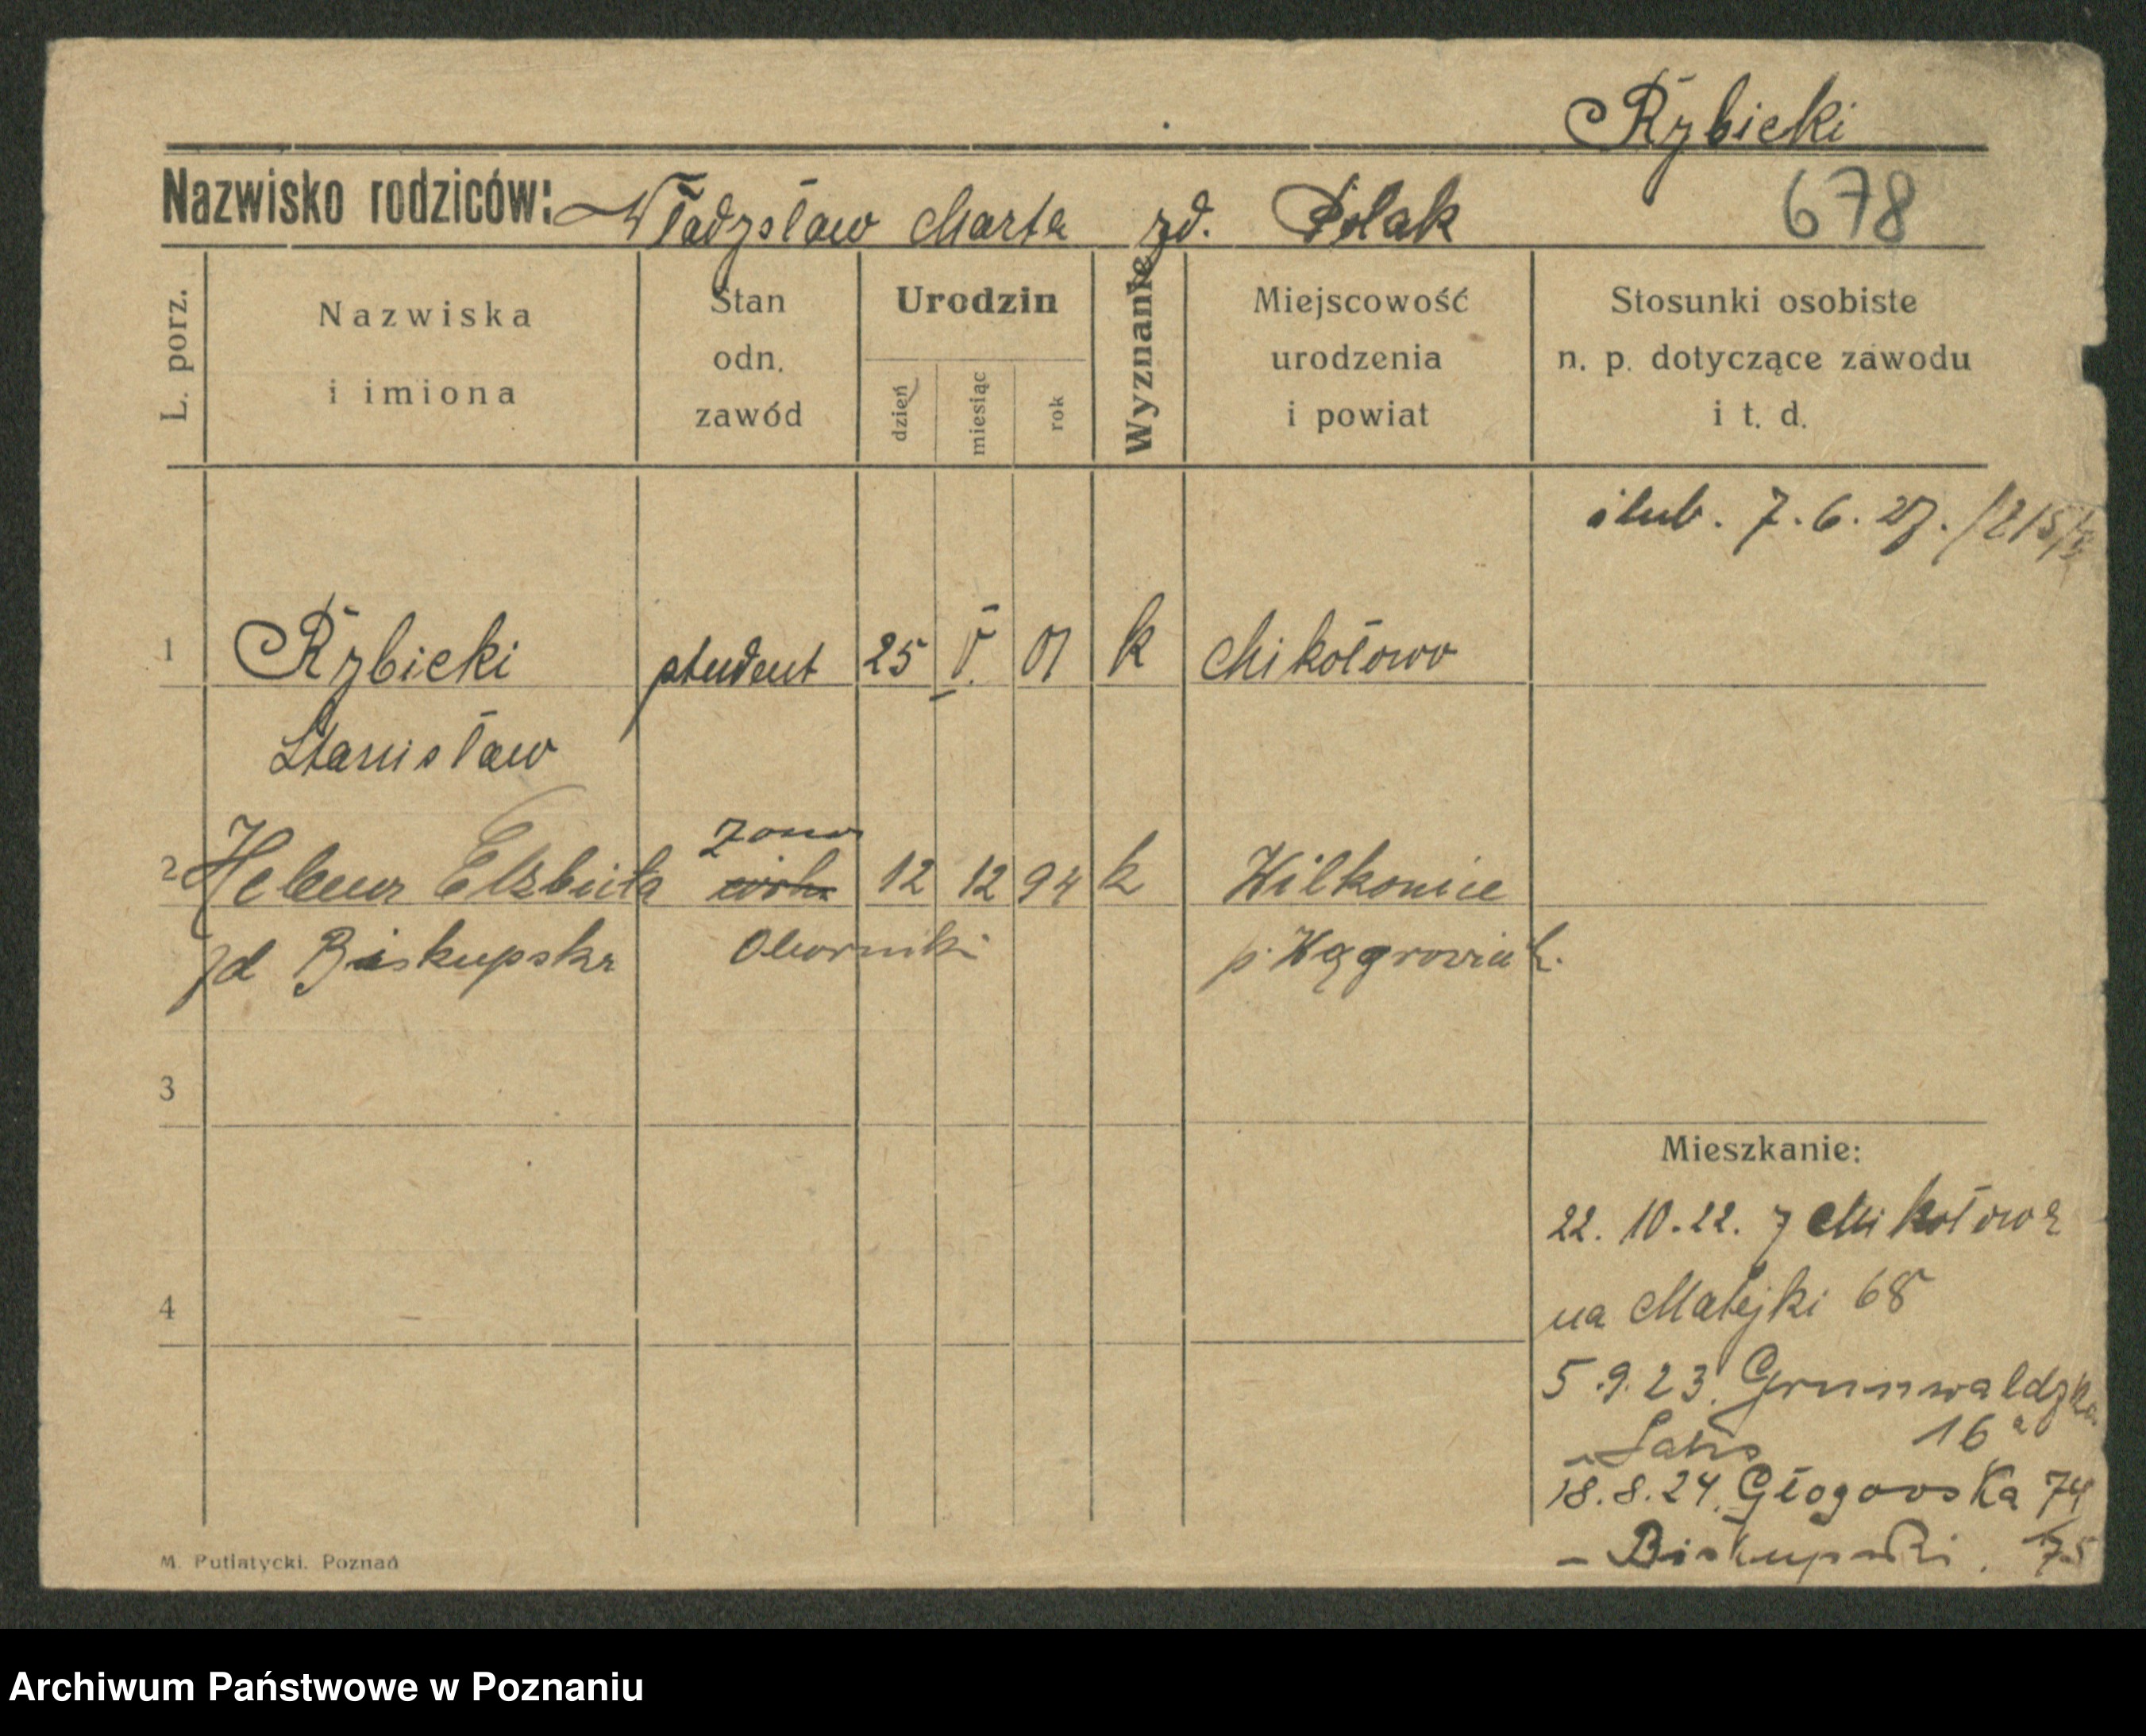 Rybicki
Nazwisko rodziców: Władysław Marta zd. Polak 678
L. porz.
Nazwiska
i imiona
Stan
odn.
zawód
Urodzin
dzień
miesiąc
rok
Wyznanie
Miejscowość
urodzenia
i powiat
Stosunki osobiste
n. p. dotyczące zawodu
i t. d.
ślub. 7.6.27.
1 Rybicki student 25 V. 01 k Mikołowo
Stanisław
żona
2 Helena Elżbieta 12 12 94 k Wilkonice
zd Biskupska Oborniki p. Wągrowiec
3
Mieszkanie:
22. 10. 22. z Mikołowa
4
na Matejki 68
5.9.23. Grunwaldzka
16a
18.8.24. Głogowska 74
– Biskupski. 75
M. Putiatycki. Poznań
Archiwum Państwowe w Poznaniu